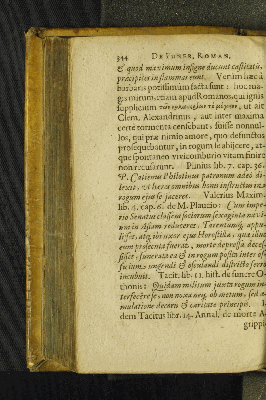 344 DE FUNER. ROMAN.
& quod maximum insigne ducunt castitatis,
præcipites in flammas eunt. Verùm hæc à
barbaris potissimùm facta sunt: hoc ma-
gis mirum, etiam apud Romanos, qui ignis
supplicium ut ait
Clem. Alexandrinus, aut inter maxima
certe tormenta censebant, fuisse nonnul-
los, qui præ nimio amore, quo defunctos
prosequebantur, in rogum se abjicere, at-
que sponte suo vivicomburio vitam finire
non recusarunt. Plinius lib. 7. cap. 36.
P. Catienus Philotimus patronum adeò di-
lexit, ut heres omnibus bonis institutus in
rogum ejus se jaceret. Valerius Maxim.
lib. 4. cap. 6. de M. Plautio: Cum impe-
rio Senatus classem sociorum sexaginta navi-
um in Asiam reduceret, Tarentumq; appu-
lisset, atq; ibi uxor ejus Horestilla, quæ illuc
eum prosecuta fuerat, morbo depressa deces-
sisset, funerata ea & in rogum posita inter of-
ficium ungendi & osculandi districto ferro
incubuit. Tacit. lib. 11. hist. de funere O-
thonis: Quidam militum juxta rogum in-
terfecere se, non noxa neq, ob metum, sed æ-
mulatione decoris & caritate principis. I-
dem Tacitus libr. 14. Annal. de morte A-
grippi